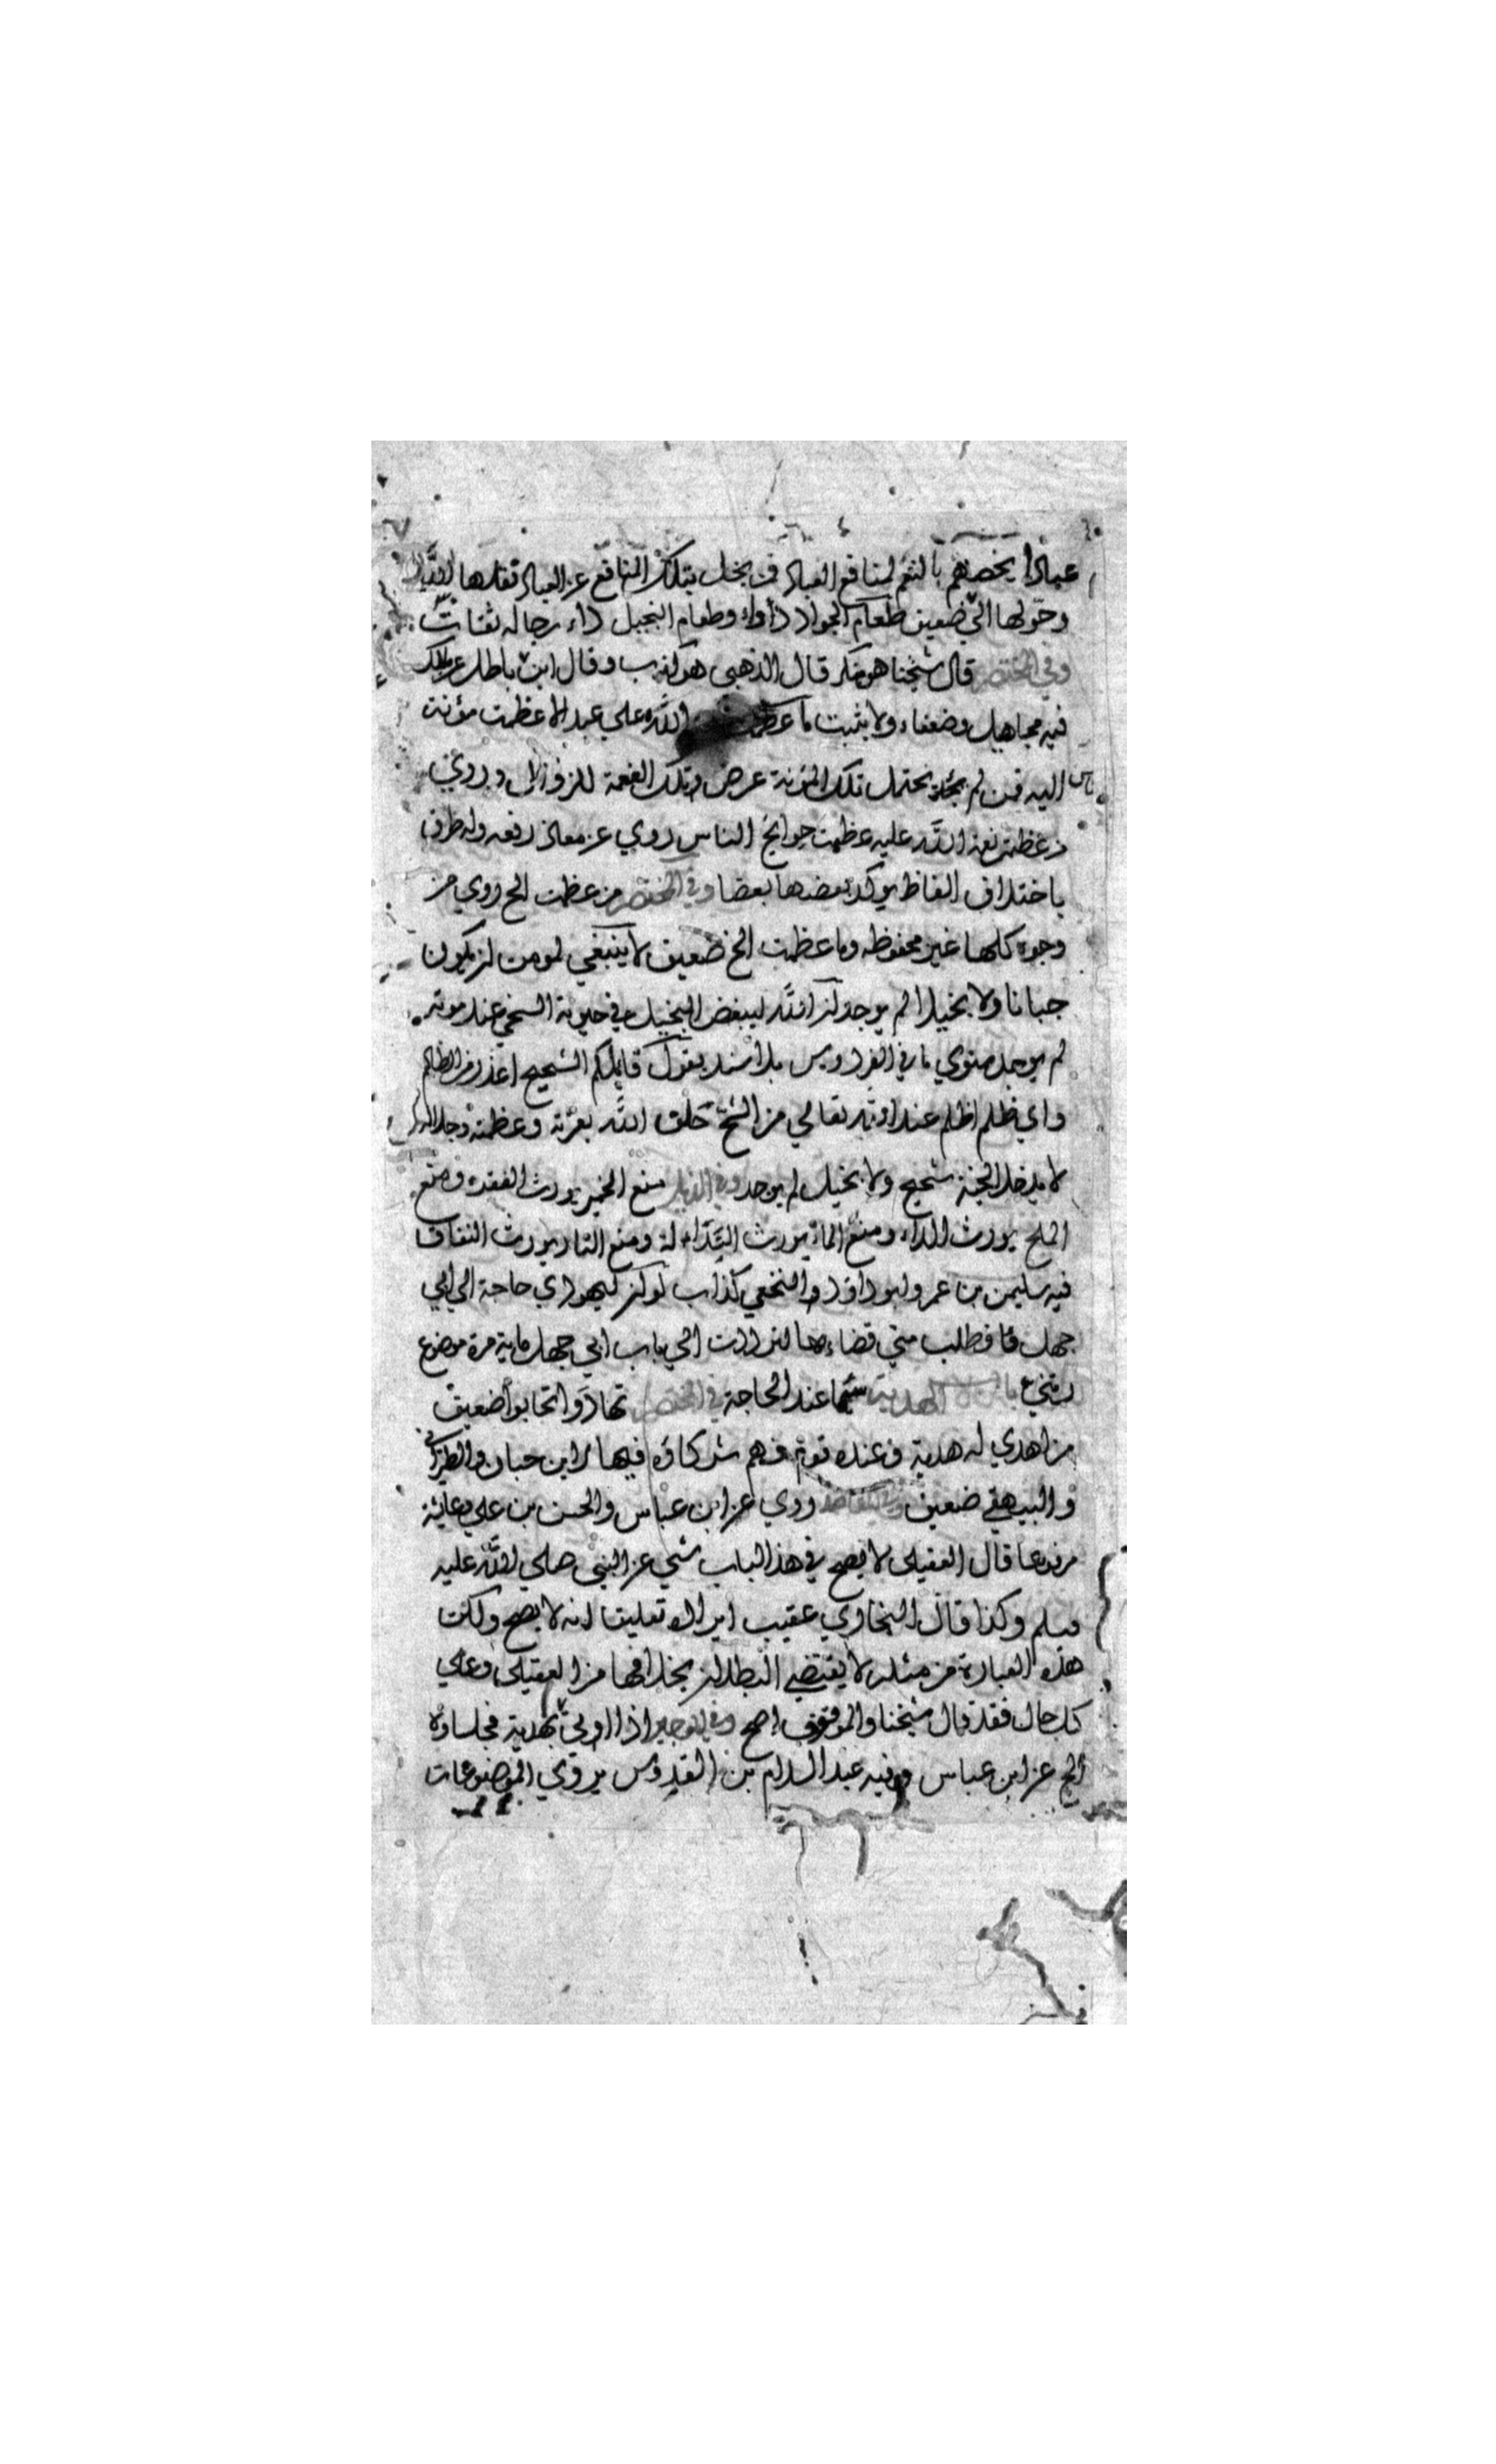 عبادا يخصهم بالنعم لمنافع العباد فمن بخل بتلك المنافع عن العباد نقلها الله
وحولها الى ضعيف طعام الجواد دواء وطعام البخيل داء رجاله ثقات
وفي المختصر قال شيخنا هو منكر قال الذهبي هو كذب وقال ابن باطل عن مالك
فيه مجاهيل وضعفاء ولا يثبت ما عظمت الله علي عبد الا عظمت مؤنة
الناس اليه فمن لم يحتمل تلك المؤنة عرض تلك النعمة للزوال وروي
من عظمت نعمة الله عليه عظمت حوايج الناس روي عن معاذ رفعه وله طرق
باختلاف الفاظ يوكد بعضها بعضا وفي المختصر من عظمت الخ روي من
وجوه كلها غير محفوظه وما عظمت الخ ضعيف لا ينبغي لمومن ان يكون
جبانا ولا بخيلا لم يوجد ان الله ليبغض البخيل في حيوته السخي عند موته
لم يوجد سوي ما في الفردوس بلا سند يقول قايلكم الشحيح اعذر من الظالم
واي ظلم اظلم عند الله تعالي من الشح حلف الله بعزته وعظمته وجلاله
لا يدخل الجنة شحيح ولا بخيل لم يوجد وفي الذيل منع الخمير يورث الفقر ومنع
الملح يورث الداء ومنع الماء يورث النذالة ومنع النار يورث النفاق
فيه سليمن بن عمرو ابو داود النخعي كذاب لو ان ليهودي حاجة الي ابي
جهل فطلب مني قضاءها لترددت الي باب ابي جهل ماية مرة موضوع
باب الهدية سيما عند الحاجة في المختصر تهادوا تحابوا ضعيف
من اهدي له هدية وعنده قوم فهم شركاؤه فيها لابن حبان والطبراني
والبيهقي ضعيف وفي المقاصد روي عن ابن عباس والحسن بن علي وعائشة
مرفوعا قال العقيلي لا يصح في هذا الباب شي عن النبي صلي الله عليه
وسلم وكذا قال البخاري عقيب ايراده تعليقا انه لا يصح ولكن
هذه العبارة من مثله لا يقتضي البطلان بخلافها من العقيلي وعلي
كل حال فقد قال شيخنا والموقوف اصح وفي الوجيز اذا اوتي بهدية فجلساؤه
الخ عن ابن عباس وفيه عبد السلام بن القدوس يروي الموضوعات